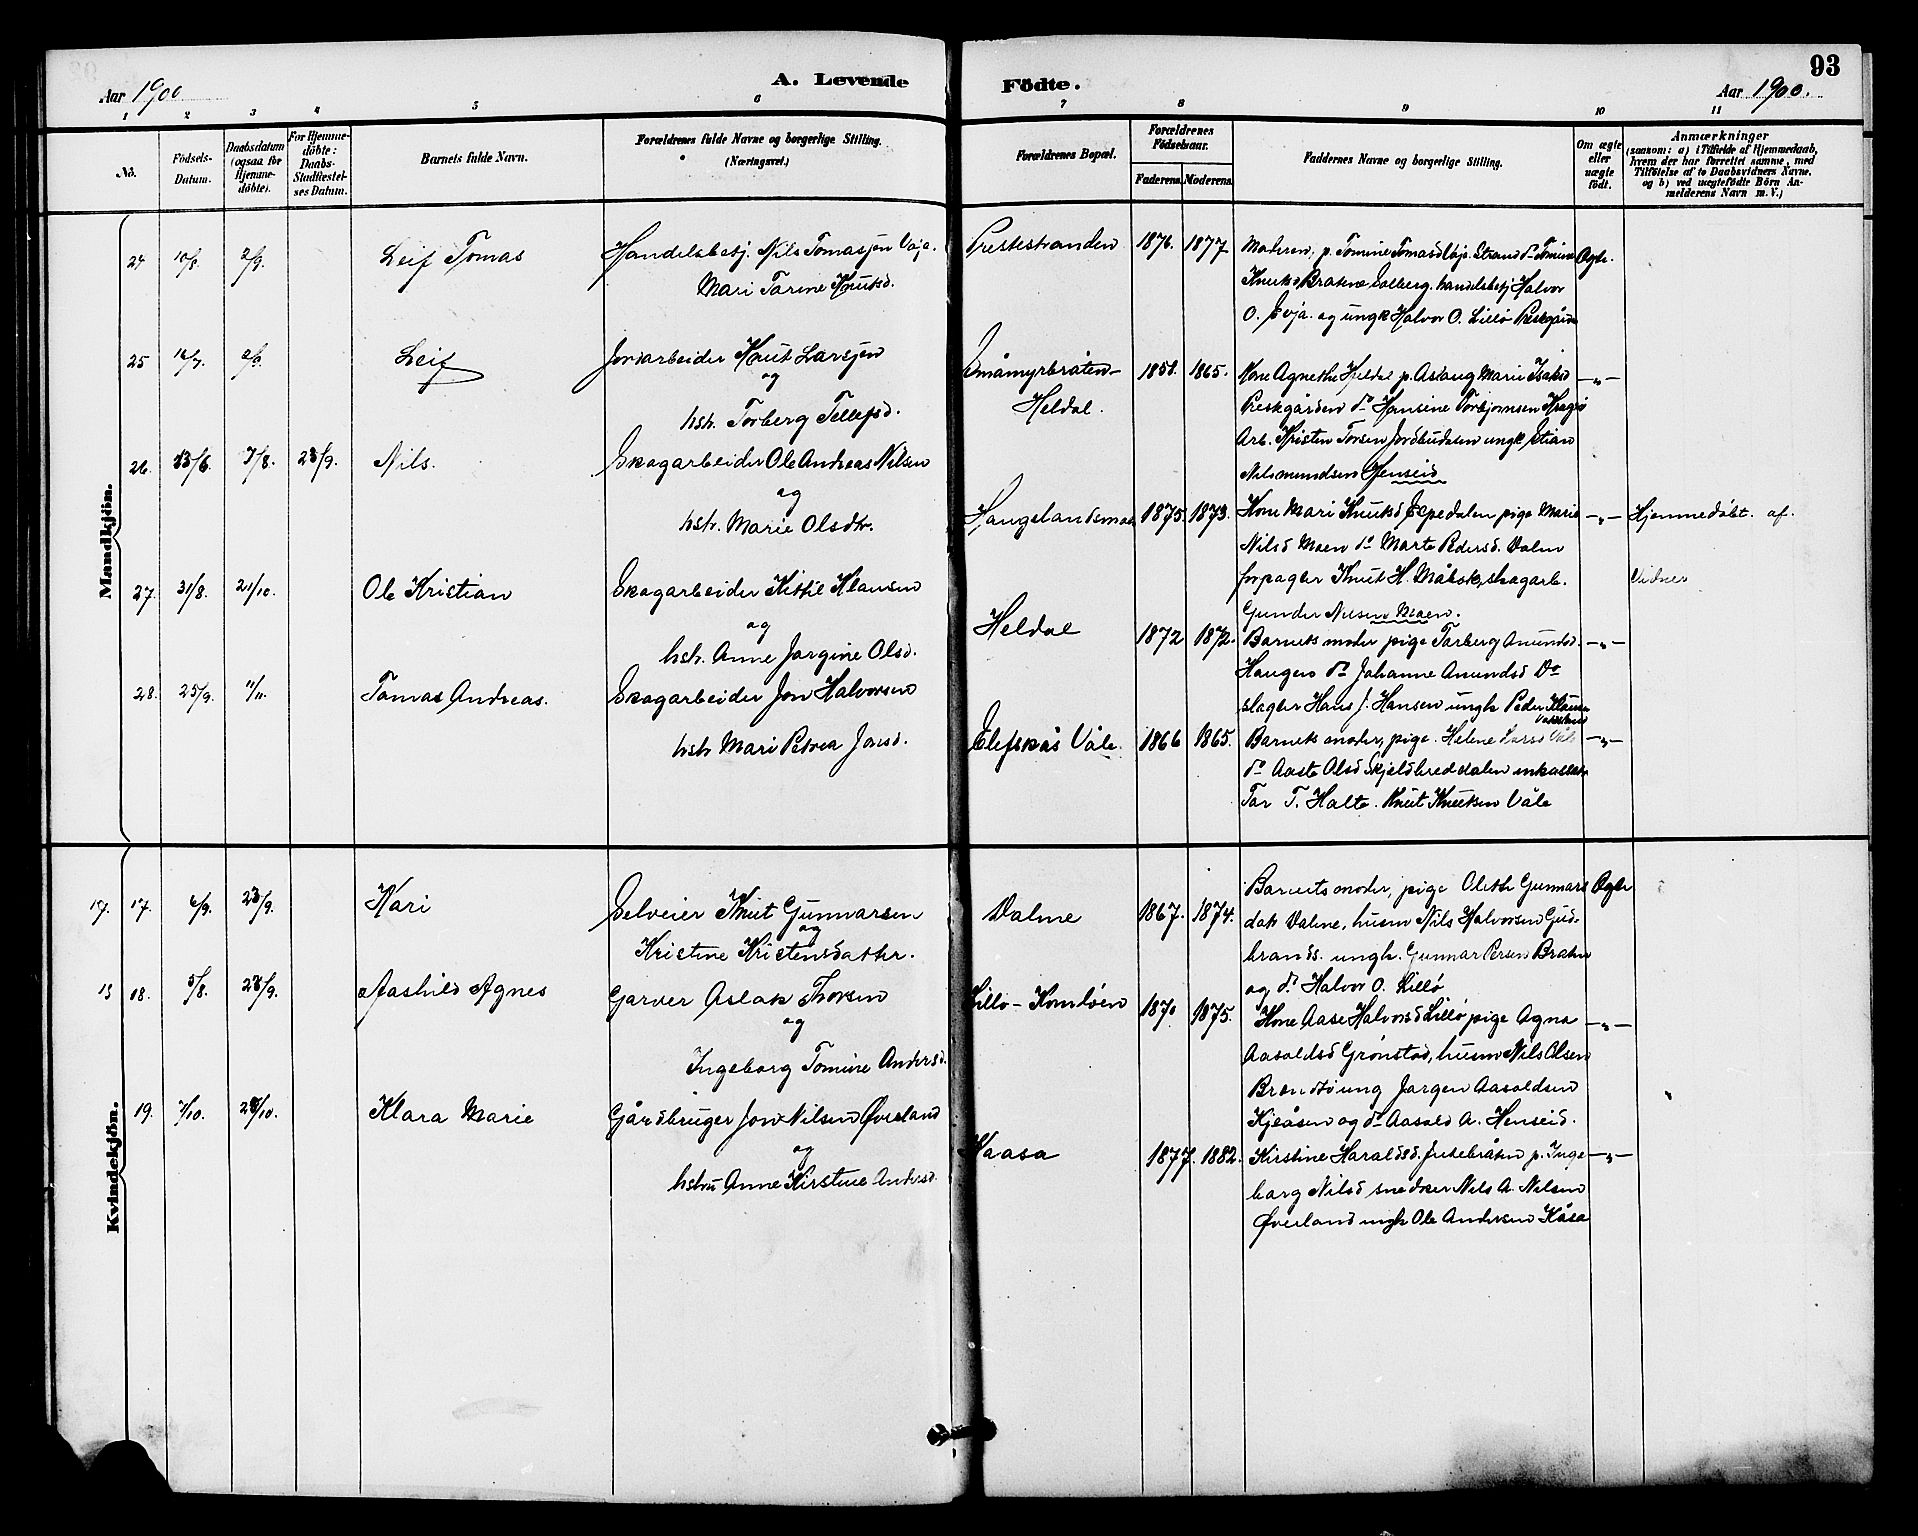 93
Aar 1900
A. Levende
Födte.
Aar 1900.
1 2 3 4 5 6 7 8 9 10 11
No.
Födsels-
Datum.
Daabsdatum
(ogsaa for
Hjemme-
döbte).
For Hjemme-
döbte:
Daabs-
Stadfæstel-
ses Datum.
Barnets fulde Navn.
Forældrenes fulde Navne og borgerlige Stilling.
(Næringsvei.)
Forældrenes Bopæl.
Forældrenes
Födselsaar.
Faderens.
Moderens.
Faddernes Navne og borgerlige Stilling.
Om ægte
eller
uægte
födt.
Anmærkninger
(saasom: a) i Tilfælde af Hjemmedaab,
hvem der har forrettet samme, med
Tilföielse af to Daabsvidners Navne,
og b) ved uægtefödte Börn An-
melderens Navn m. V.)
Mandkjön.
24 10/8. 2/9. Leif Tomas
Handelsbetj. Nils Tomasjen Vaja.
Mari Tarine Knutsd.
Prestestranden 1876. 1877
Moderen, p. Tomine Tomasd Vaja. Strand do Tomine
Knutsd, Bratene Solberg. handelsbetj Halvor
O. Evja. og ungk Halvor O. Lillø Preskgårde
Ægte.
25 2/9. Leif
Jordarbeider Knut Larsjen
og
hstr. Torberg Tellefsd.
Småmyrbråten-
Heldal.
1851. 1865.
Kone Agnethe Heldal p. Aslaug Marie Isaksd
Preskgården do Hansine Torbjørnsen Kragerø
Arb. Kristen Torsen Jordbudalen ungk Stian
Nilsmundsen Henseid
—„—
26. 13/6 7/8. 23/9. Nils.
Skogarbeider Ole Andreas Nilsen
og
hstr. Marie Olsdtr.
Haugelandsmoe 1875. 1873.
Kone Mari Knutsd Espedalen pige Marie
Nilsd Moen do Marte Pedersd. Dalen
forpagter Knut H. Målsk, skogarb.
Gunder Nilsen Moen.
—„— Hjemmedøbt af.
Vidner
27. 31/8. 21/10. Ole Kristian
Skogarbeider Kittil Klausen
og
hstr. Anne Jorgine Olsd.
Heldal 1872 1872.
Barnets moder pige Torberg Amundsd.
Haugen do Johanne Amundsd Do
slagter Hans J. Hansen ungk Peder Klausen
—„—
28. 25/9. 11/11. Tomas Andreas.
Skogarbeider Jon Halvorsen
hstr Mari Petrea Jonsd.
Elefskås Våle. 1866 1865.
Barnets moder, pige. Helene Larsd Våle
do Aaste Olsd Skjeldbreddalen inkassator
Tor T. Halte. Knut Knutsen Våle
—„—
Kvindekjön.
17. 17. 6/9. 23/9. Kari
Selveier Knut Gunnarsen
og
Kristine Kristensdatter.
Dalene 1867. 1874.
Barnets moder, pige Olette Gunnars
datr Dalene, husm Nils Halvorsen Gud-
brands. ungk. Gunnar Persen Braten
og do Halvor O. Lillø
Ægte
18. 5/8. 23/9. Aashild Agnes
Garver Aslak Thorsen
og
Ingeborg Tomine Andersd.
Lillø-Komløen 1870 1875.
Kone Aase Halvorsd Lillø pige Agna
Aasoldsd Grønstad, husm Nils Olsen
Brændtø ung Jørgen Aasoldsen
Kjeåsen og do Aasold A. Henseid.
—„—
19. 7/10. 28/10. Klara Marie
Gårdbruger Jon Nilsen Øverland
og
hstru Anne Kirstine Andersd.
Kaasa 1877. 1882.
Kirstine Haraldsd. Jutebråten p. Inge-
borg Nilsd snedker Nils A. Nilsen
Øverland ungk Ole Andersen Kåsa
—„—